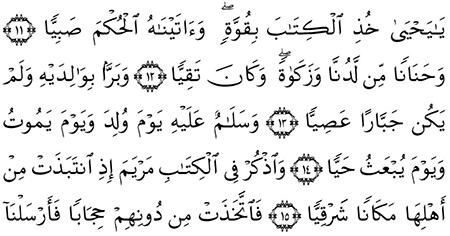 يَٰيَحۡيَىٰ خُذِ ٱلۡكِتَٰبَ بِقُوَّةٖۖ وَءَاتَيۡنَٰهُ ٱلۡحُكۡمَ صَبِيّٗا ١١
وَحَنَانٗا مِّن لَّدُنَّا وَزَكَوٰةٗۖ وَكَانَ تَقِيّٗا ١٢ وَبَرَّۢا بِوَٰلِدَيۡهِ وَلَمۡ
يَكُن جَبَّارًا عَصِيّٗا ١٣ وَسَلَٰمٌ عَلَيۡهِ يَوۡمَ وُلِدَ وَيَوۡمَ يَمُوتُ
وَيَوۡمَ يُبۡعَثُ حَيّٗا ١٤ وَٱذۡكُرۡ فِي ٱلۡكِتَٰبِ مَرۡيَمَ إِذِ ٱنتَبَذَتۡ مِنۡ
أَهۡلِهَا مَكَانٗا شَرۡقِيّٗا ١٥ فَٱتَّخَذَتۡ مِن دُونِهِمۡ حِجَابٗا فَأَرۡسَلۡنَآ